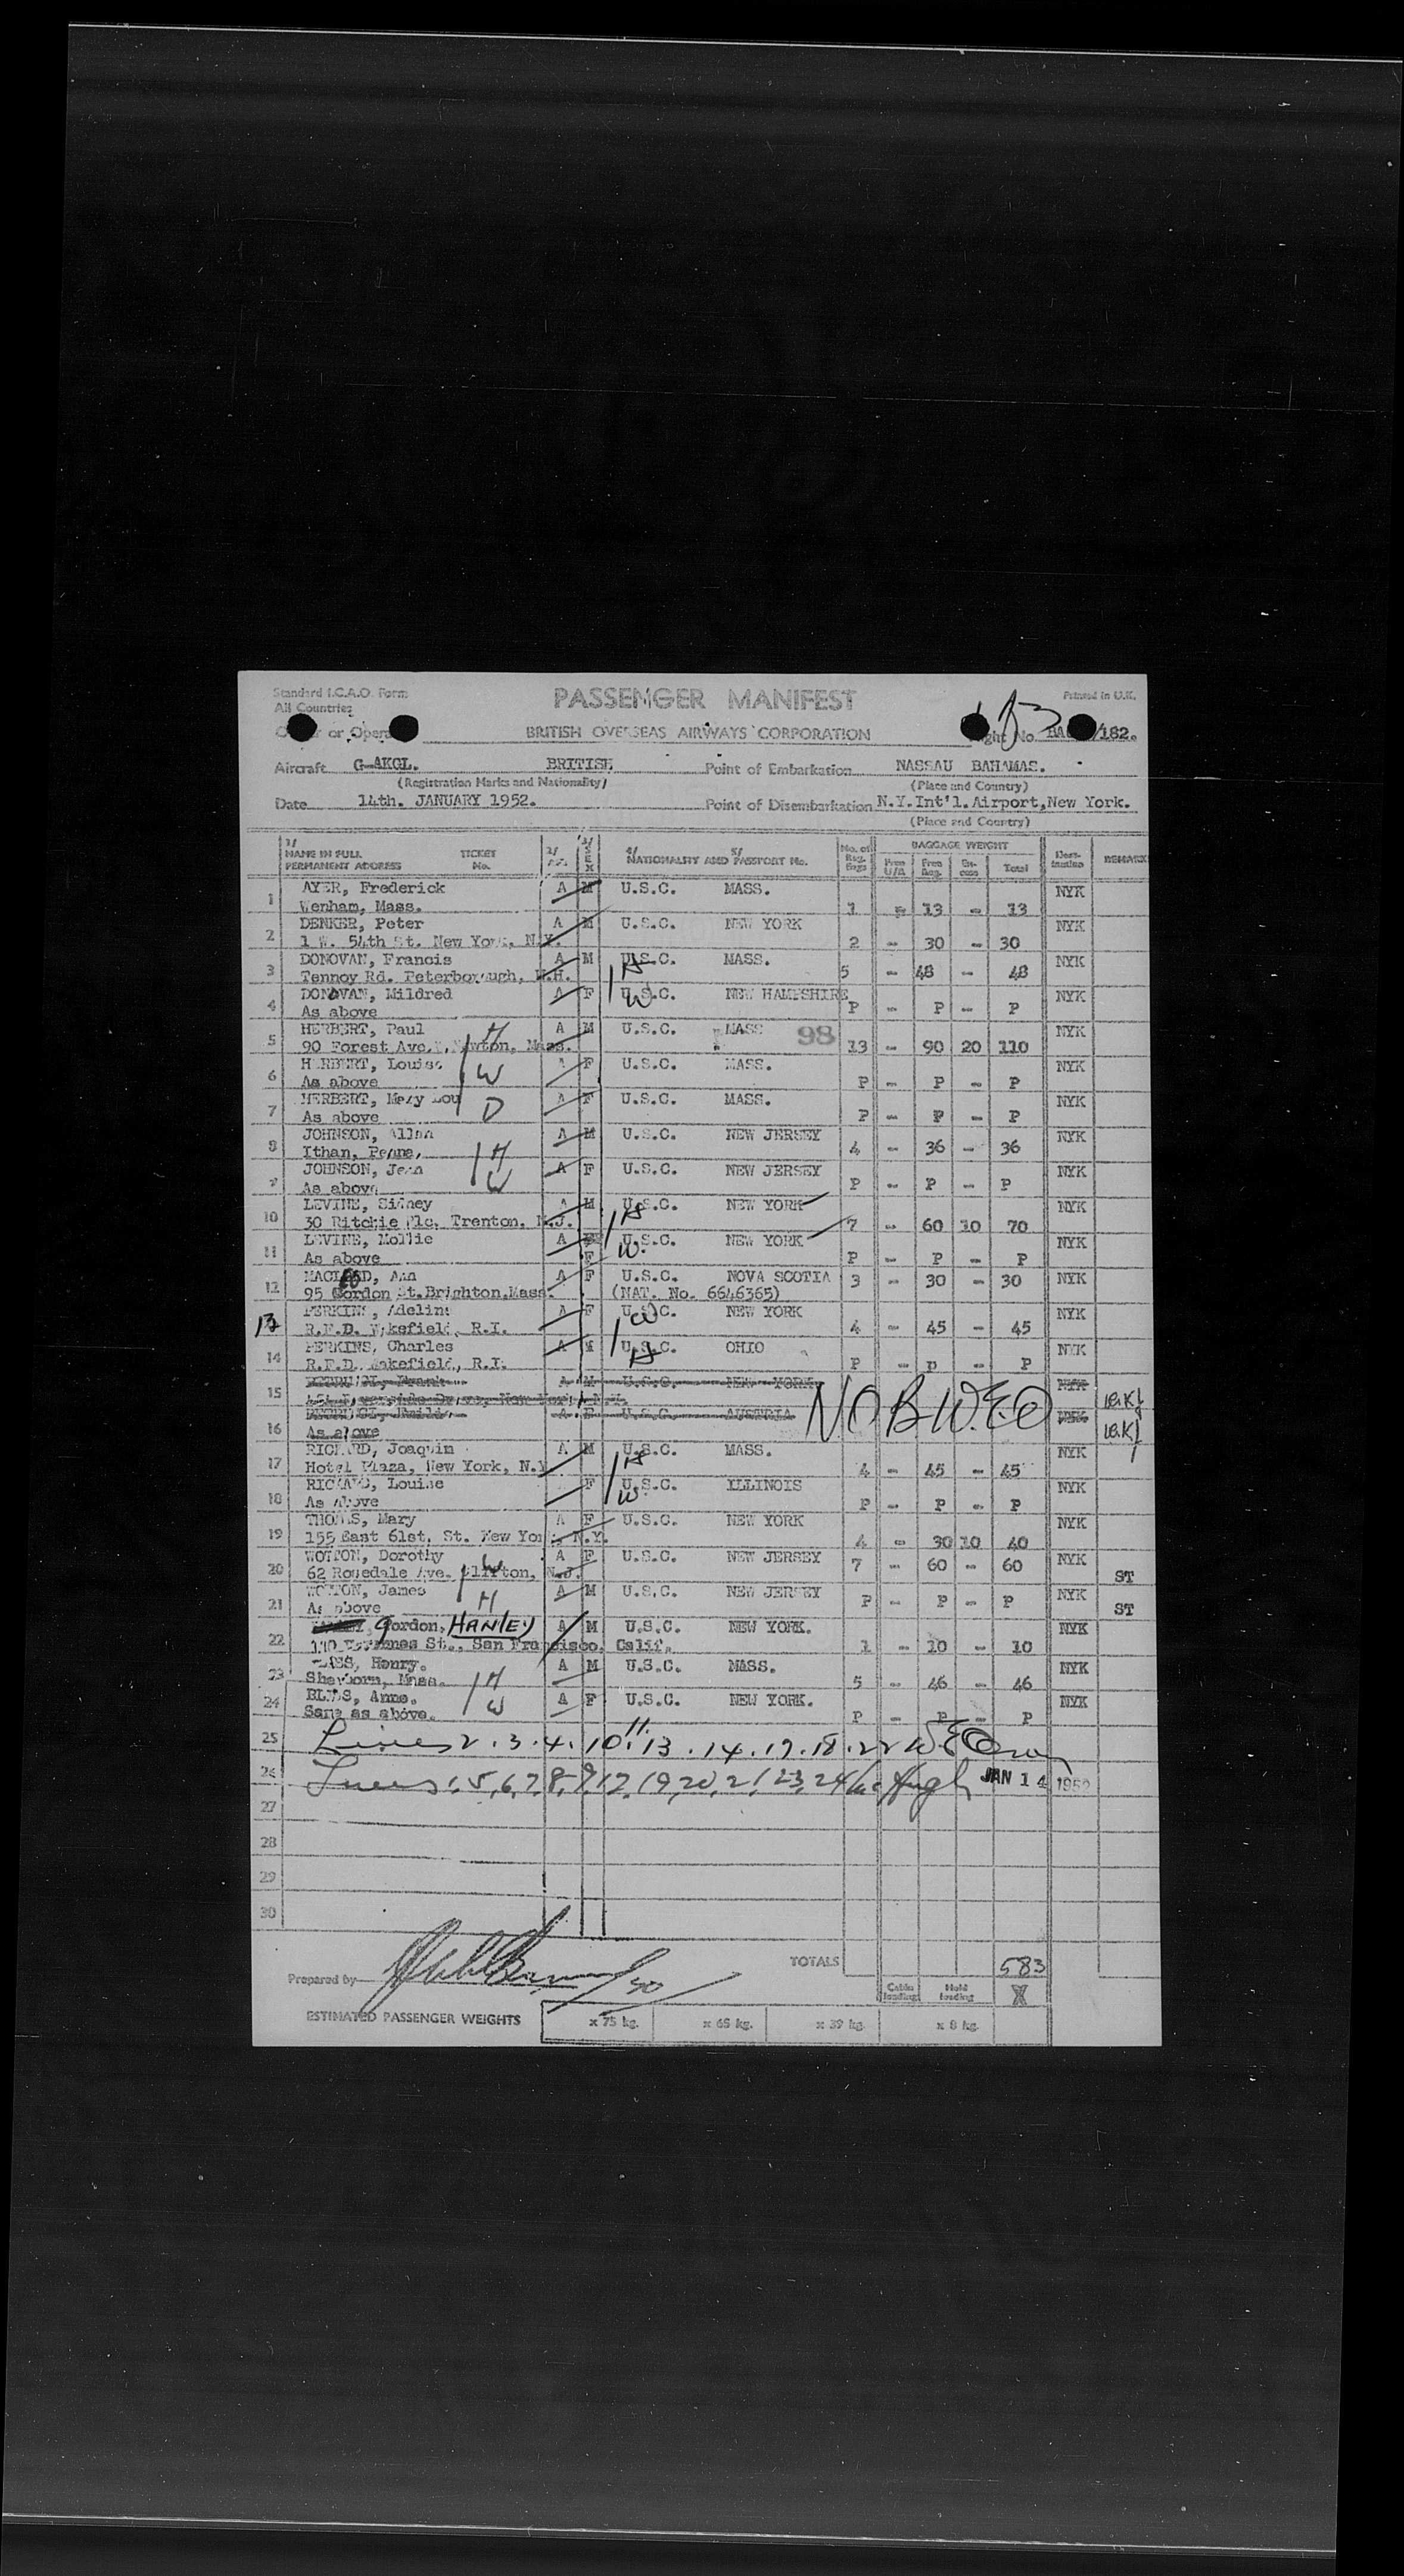 Standard I.C.A.O. Form
All Countries
PASSENGER MANIFEST
Printed in U.K.
or Opera
BRITISH OVERSEAS AIRWAYS CORPORATION
No. BA /182.
Aircraft G-AKGL. BRITISH
(Registration Marks and Nationality)
Point of Embarkation NASSAU BAHAMAS.
(Place and Country)
Date 14th. JANUARY 1952.
Point of Disembarkation N.Y.Int'l.Airport,New York.
(Place and Country)
1/ NAME IN FULL PERMANENT ADDRESS TICKET No. 2/ 3/ SEX 4/ 5/ NATIONALITY AND PASSPORT No. No. of Reg. Bags BAGGAGE WEIGHT Free U/A Free Reg. Ex-cess Total Dest-ination REMARKS
1 AYER, Frederick A M U.S.C. MASS. NYK
Wenham, Mass. 1 - 13 - 13
2 DENKER, Peter A M U.S.C. NEW YORK NYK
1 W. 54th St. New York, N.Y. 2 - 30 - 30
3 DONOVAN, Francis A M U.S.C. MASS. NYK
Tennoy Rd. Peterborough, N.H. H 5 - 48 - 48
4 DONOVAN, Mildred A F U.S.C. NEW HAMPSHIRE NYK
As above W P - P - P
5 HERBERT, Paul H A M U.S.C. MASS 98 NYK
90 Forest Ave.W.Newton, Mass. 13 - 90 20 110
6 HERBERT, Louise A F U.S.C. MASS. NYK
As above W P - P - P
7 HERBERT, Mary Lou A F U.S.C. MASS. NYK
As above D P - P - P
8 JOHNSON, Allan A M U.S.C. NEW JERSEY NYK
Ithan, Penna, H 4 - 36 - 36
9 JOHNSON, Jean A F U.S.C. NEW JERSEY NYK
As above W P - P - P
10 LEVINE, Sidney A M U.S.C. NEW YORK NYK
30 Ritchie Plc. Trenton. N.J. H 7 - 60 10 70
11 LEVINE, Mollie A F U.S.C. NEW YORK NYK
As above F W. P - P - P
12 MACLEOD, Ann A F U.S.C. NOVA SCOTIA 3 - 30 - 30 NYK
95 Gordon St.Brighton,Mass. (NAT. No. 6646365)
13 PERKINS, Adeline A F U.S.C. NEW YORK NYK
R.F.D. Wakefield, R.I. W 4 - 45 - 45
14 PERKINS, Charles A M U.S.C. OHIO NYK
R.F.D. Wakefield, R.I. H P - P - P
15 A M U.S.C. NEW YORK NYK
New York, N.Y. NOB W.E.O
16 A F U.S.C. AUSTRIA NYK
As above
17 RICHARD, Joaquin A M U.S.C. MASS. NYK
Hotel Plaza, New York, N.Y H 4 - 45 - 45
18 RICHARD, Louise F U.S.C. ILLINOIS NYK
As above W P - P - P
19 THOMAS, Mary A F U.S.C. NEW YORK NYK
155 East 61st. St. New York. N.Y. 4 - 30 10 40
20 WOTTON, Dorothy W A F U.S.C. NEW JERSEY 7 - 60 - 60 NYK
62 Rosedale Ave. Clifton, N.J. ST
21 WOTTON, James H A M U.S.C. NEW JERSEY P - P - P NYK
As above ST
22 Gordon, HANLEY A M U.S.C. NEW YORK. NYK
St., San Francisco. Calif. 1 - 10 - 10
23 Henry. A M U.S.C. MASS. NYK
Sherborn, Mass. H 5 - 46 - 46
24 Anne. A F U.S.C. NEW YORK. NYK
Same as above. W P - P - P
25 Lines 2.3.4.10.11.13.14.17.18.22 W.E.O
26 Lines 1,5,6,7,8,9,12,19,20,21,23,24 McHugh JAN 14 1952
27
28
29
30
TOTALS 583
Prepared by
Cabin loading Hold loading X
ESTIMATED PASSENGER WEIGHTS x 75 kg. x 65 kg. x 39 kg. x 8 kg.